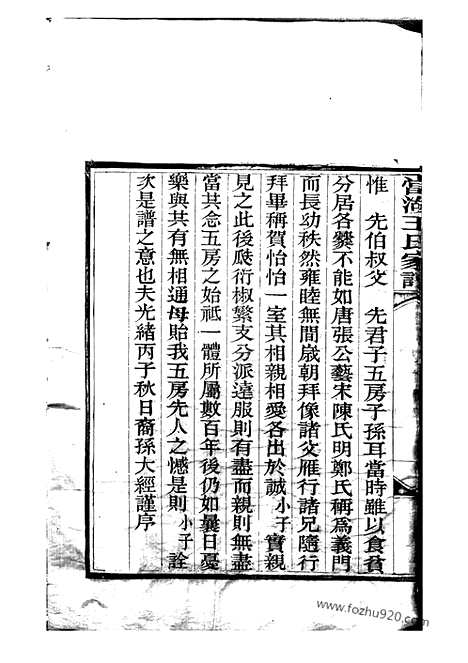 當湖王氏家譜
惟　先伯叔父　先君子五房子孫耳當時雖以食貧
分居各爨不能如唐張公藝宋陳氏明鄭氏稱為義門
而長幼秩然雍睦無間歲朝拜像諸父雁行諸兄隨行
拜畢稱賀怡怡一室其相親相愛各出於誠小子實親
見之此後瓞衍椒繁支分派遠服則有盡而親則無盡
當其念五房之始祗一體所屬數百年後仍如曩日憂
樂與共有無相通毋貽我五房先人之憾是則小子詮
次是譜之意也夫光緒丙子秋日裔孫大經謹序
www.fozhu920.com